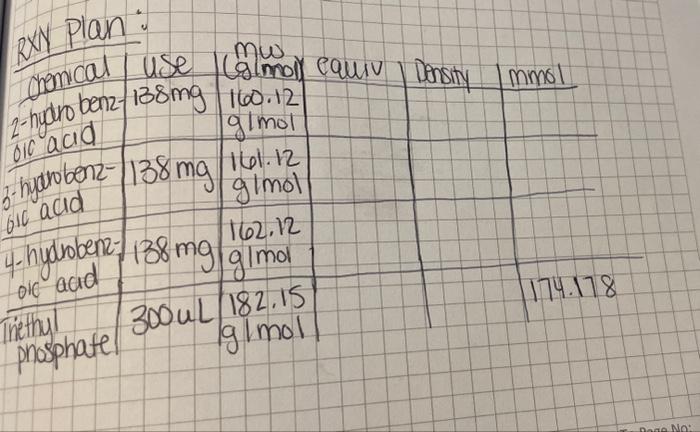 RXN Plan:
chemical | use | MW (g/mol) | equiv | Density | mmol
2-hydrobenz- | 138mg | 160.12
oic acid | g/mol
3-hydrobenz- | 138mg | 161.12
oic acid | g/mol
4-hydrobenz- | 138mg | 162.12
oic acid | g/mol
Triethyl | 300uL | 182.15 | 174.178
phosphate | g/mol
Page No: